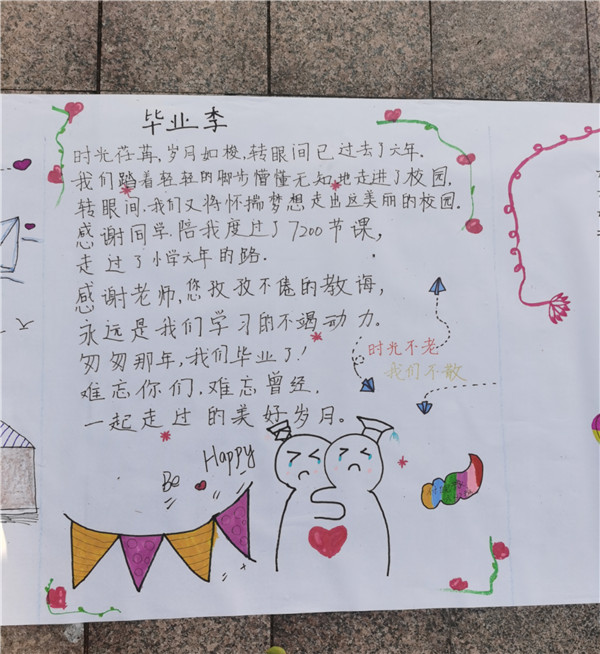 毕业季
时光荏苒,岁月如梭,转眼间已过去了六年.
我们踏着轻轻的脚步懵懂无知地走进了校园,
转眼间,我们又将怀揣梦想走出这美丽的校园.
感谢同学,陪我度过了7200节课,
走过了小学六年的路.
感谢老师,您孜孜不倦的教诲,
永远是我们学习的不竭动力.
匆匆那年,我们毕业了!
难忘你们,难忘曾经,
一起走过的美好岁月。
时光不老
我们不散
Be Happy